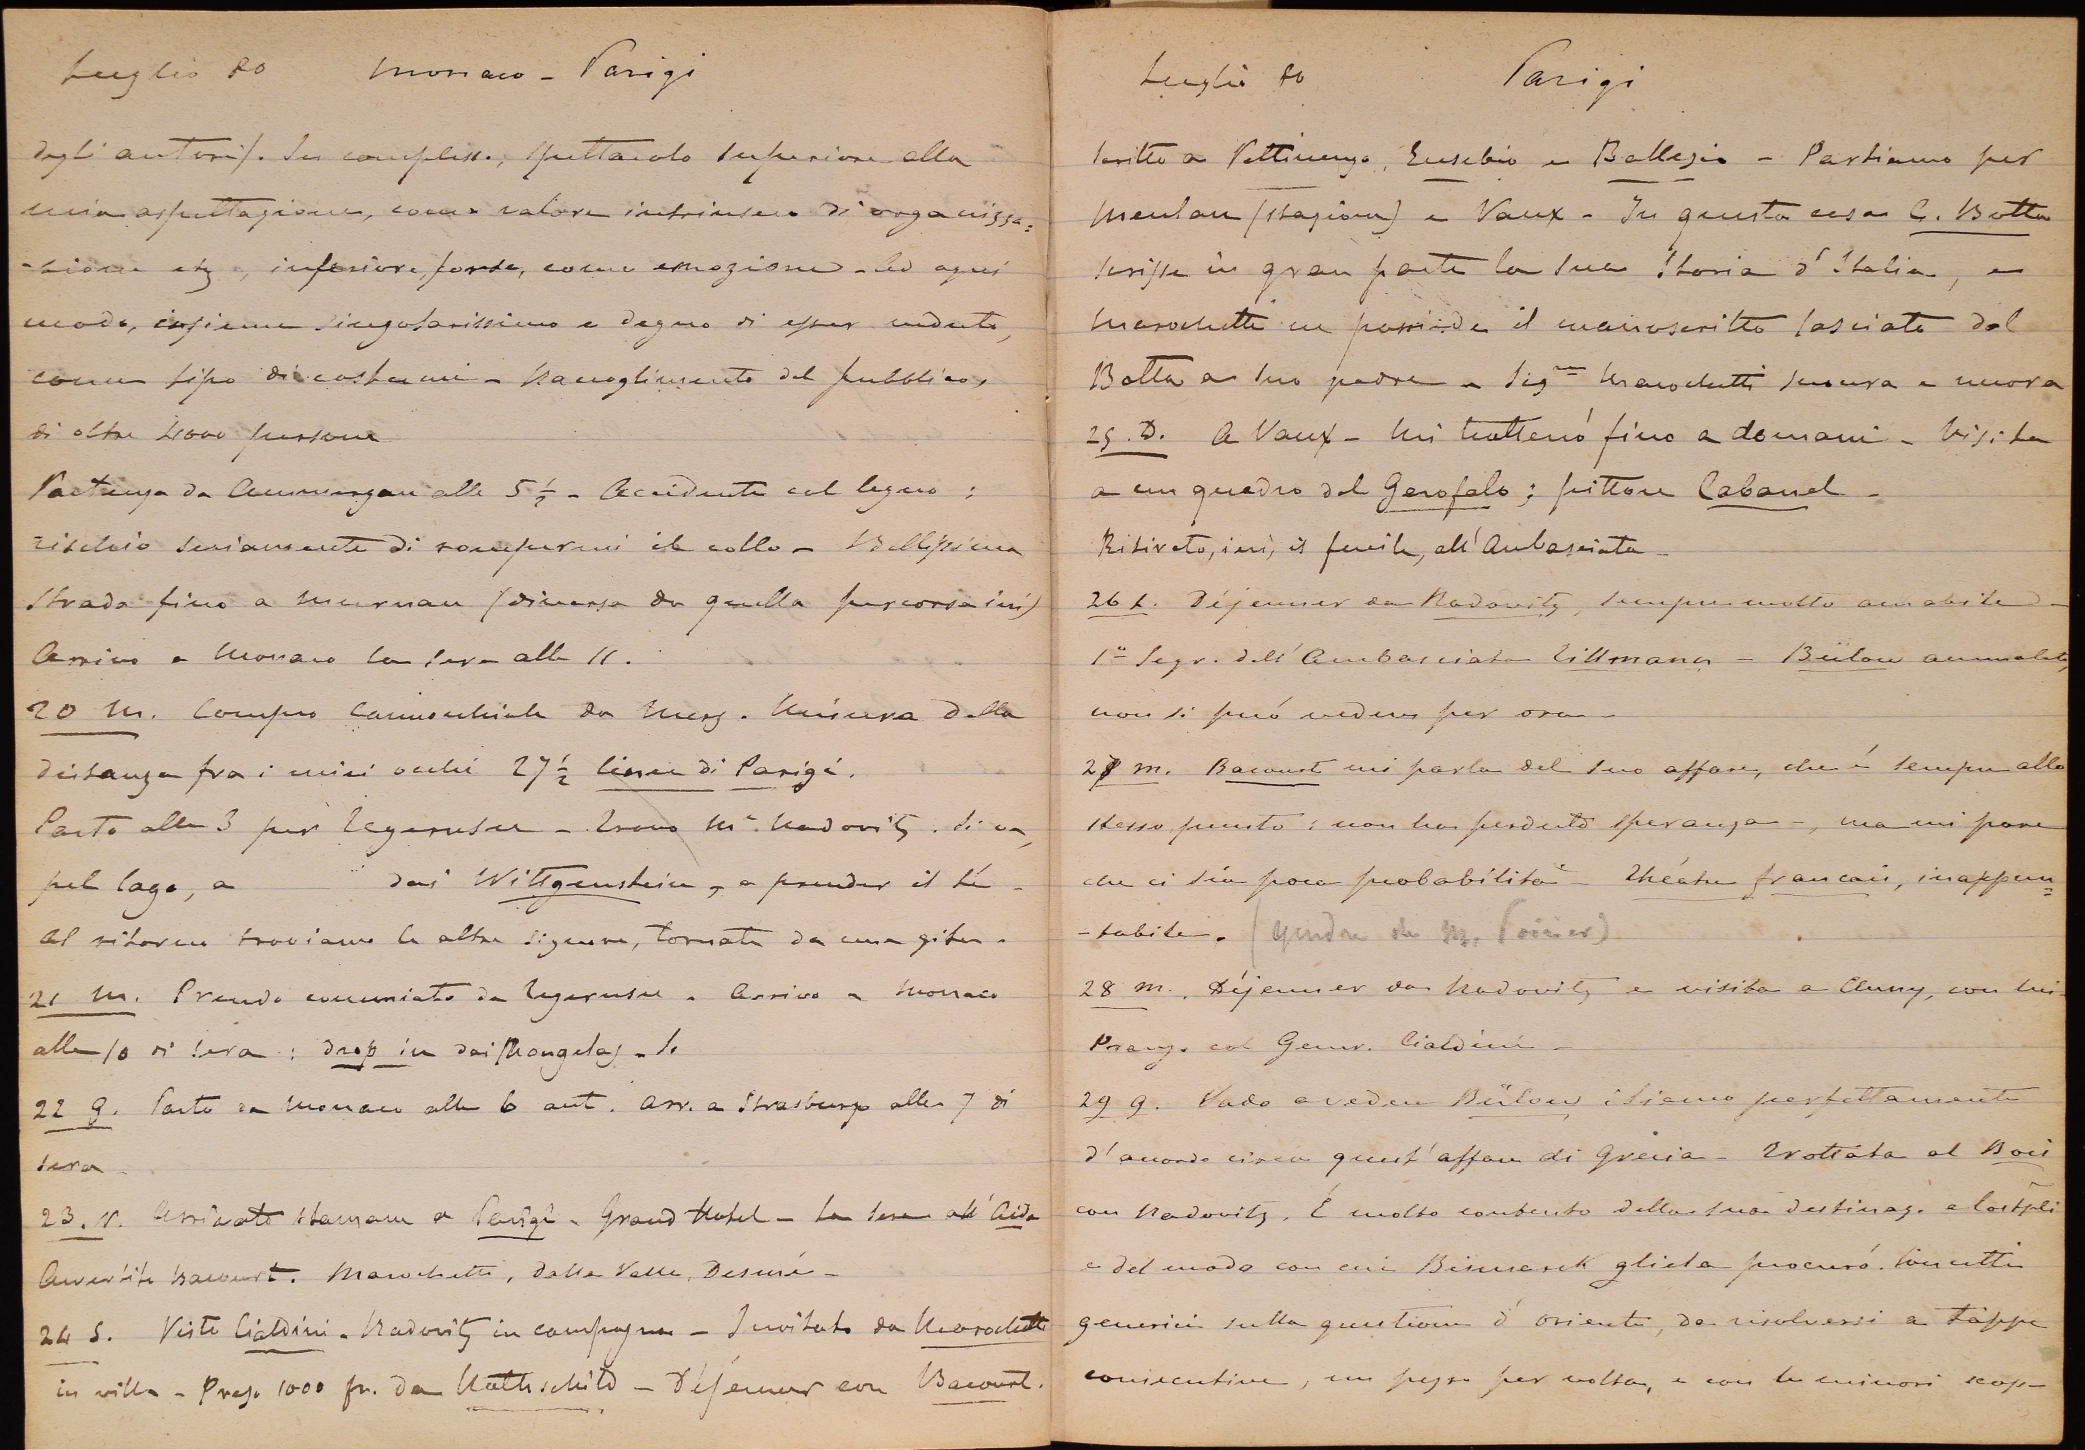 Luglio 80 Monaco - Parigi
degli antori). In complesso, spettacolo superiore alla
mia aspettazione, come valore intrinseco di organizza=
-zione etz, inferiore forse, come emozione - Ad ogni
modo, insieme singolarissimo e degno di esser veduto,
come tipo di costumi - Raccoglimento del pubblico,
di oltre 4000 persone
Partenza da Ammergau alle 5 ½ - Accidente col legno :
rischio seriamente di rompermi il collo - Bellissima
strada fino a Murnau (diversa da quella percorsa ieri)
Arrivo a Monaco la sera alle 11.
20 M. Compro cannocchiale da Merz. Misura della
distanza fra i miei occhi 27 ½ linee di Parigi.
Parto alle 3 per Tegernsee - Trovo Mr Radovitz. Si va,
pel lago, a dai Wittgenstein, a prender il té -
Al ritorno troviamo le altre signore, tornate da una gita.
21 M. Prendo commiato da Tegernsee. Arrivo a Monaco
alle 10 di sera : drop in dai Mongelas -
22 G. Parto da Monaco alle 6 ant. Arr. a Strasburgo alle 7 di
sera -
23. V. Arrivato stamane a Parigi - Grand Hotel - La sera all' Aida
Avvertiti Bacourt. Marochetti, Dalla Valle,
24 S. Visto Cialdini - Radovitz in campagna - Invitato da Marochetti
in villa - Preso 1000 fr. da Rothschild - Déjeuner con Bacourt.
Luglio 80 Parigi
Scritto a Pettinengo, Eusebio e Ballesio - Partiamo per
Meulan (stazione) e Vaux - In questa casa C. Botta
scrisse in gran parte la sua Storia d'Italia, e
Marochetti ne possiede il manoscritto lasciato dal
Botta a suo padre - Sigre Marochetti suocera e nuora
25. D. A Vaux - Mi tratterró fino a domani - Visita
a un quadro del Garofalo ; pittore Cabanel -
Ritirato, ieri, il fucile, all'Ambasciata -
26 L. Déjeuner da Radovitz, sempre molto amabile -
1° Segr. dell'Ambasciata Tillmann - Bülow ammalato,
non si puó vedere per ora -
27 M. Bacourt mi parla del suo affare, che é sempre allo
stesso punto : non ha perduto speranza -, ma mi pare
che ci sia poca probabilitá - Théatre francais, inappun=
-tabile. (Gendre de M. Poirier)
28 M. Déjeuner da Radovitz e visita a Cluny, con lui -
Pranzo col Gener. Cialdini -
29 G. Vado a veder Bülow, : Siamo perfettamente
d'accordo circa quest'affare di Grecia - Trottata al Bois
con Radovitz. É molto contento della sua destinaz. a Costpli
e del modo con cui Bismarck gliela procuró. Concetti
generici sulla questione d'Oriente, da risolversi a tappe
consecutive, un pezzo per volta, e con le minori scos-